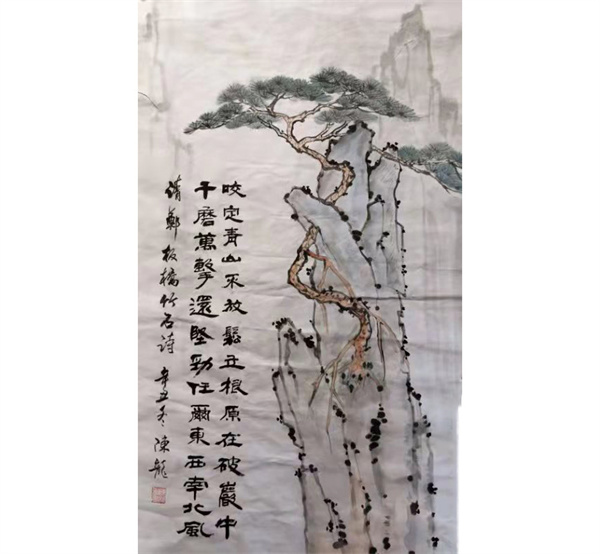 咬定青山不放鬆立根原在破巖中
千磨萬擊還堅勁任爾東西南北風
清鄭板橋竹石詩 辛丑冬 陳龍